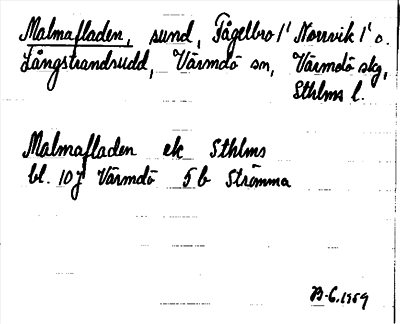 Malmafladen, sund, Fågelbro 1¹ Norrvik 1¹ o.
Långstrandsudd, Värmdö sn, Värmdö skg,
Sthlms l.
Malmafladen ek Sthlms
bl. 10J Värmdö 5b Strömma
1959